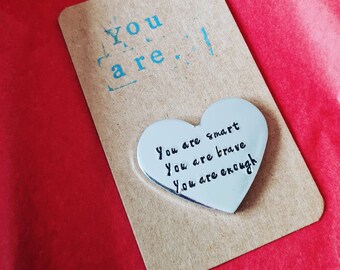 You
are.
You are smart
You are brave
You are enough